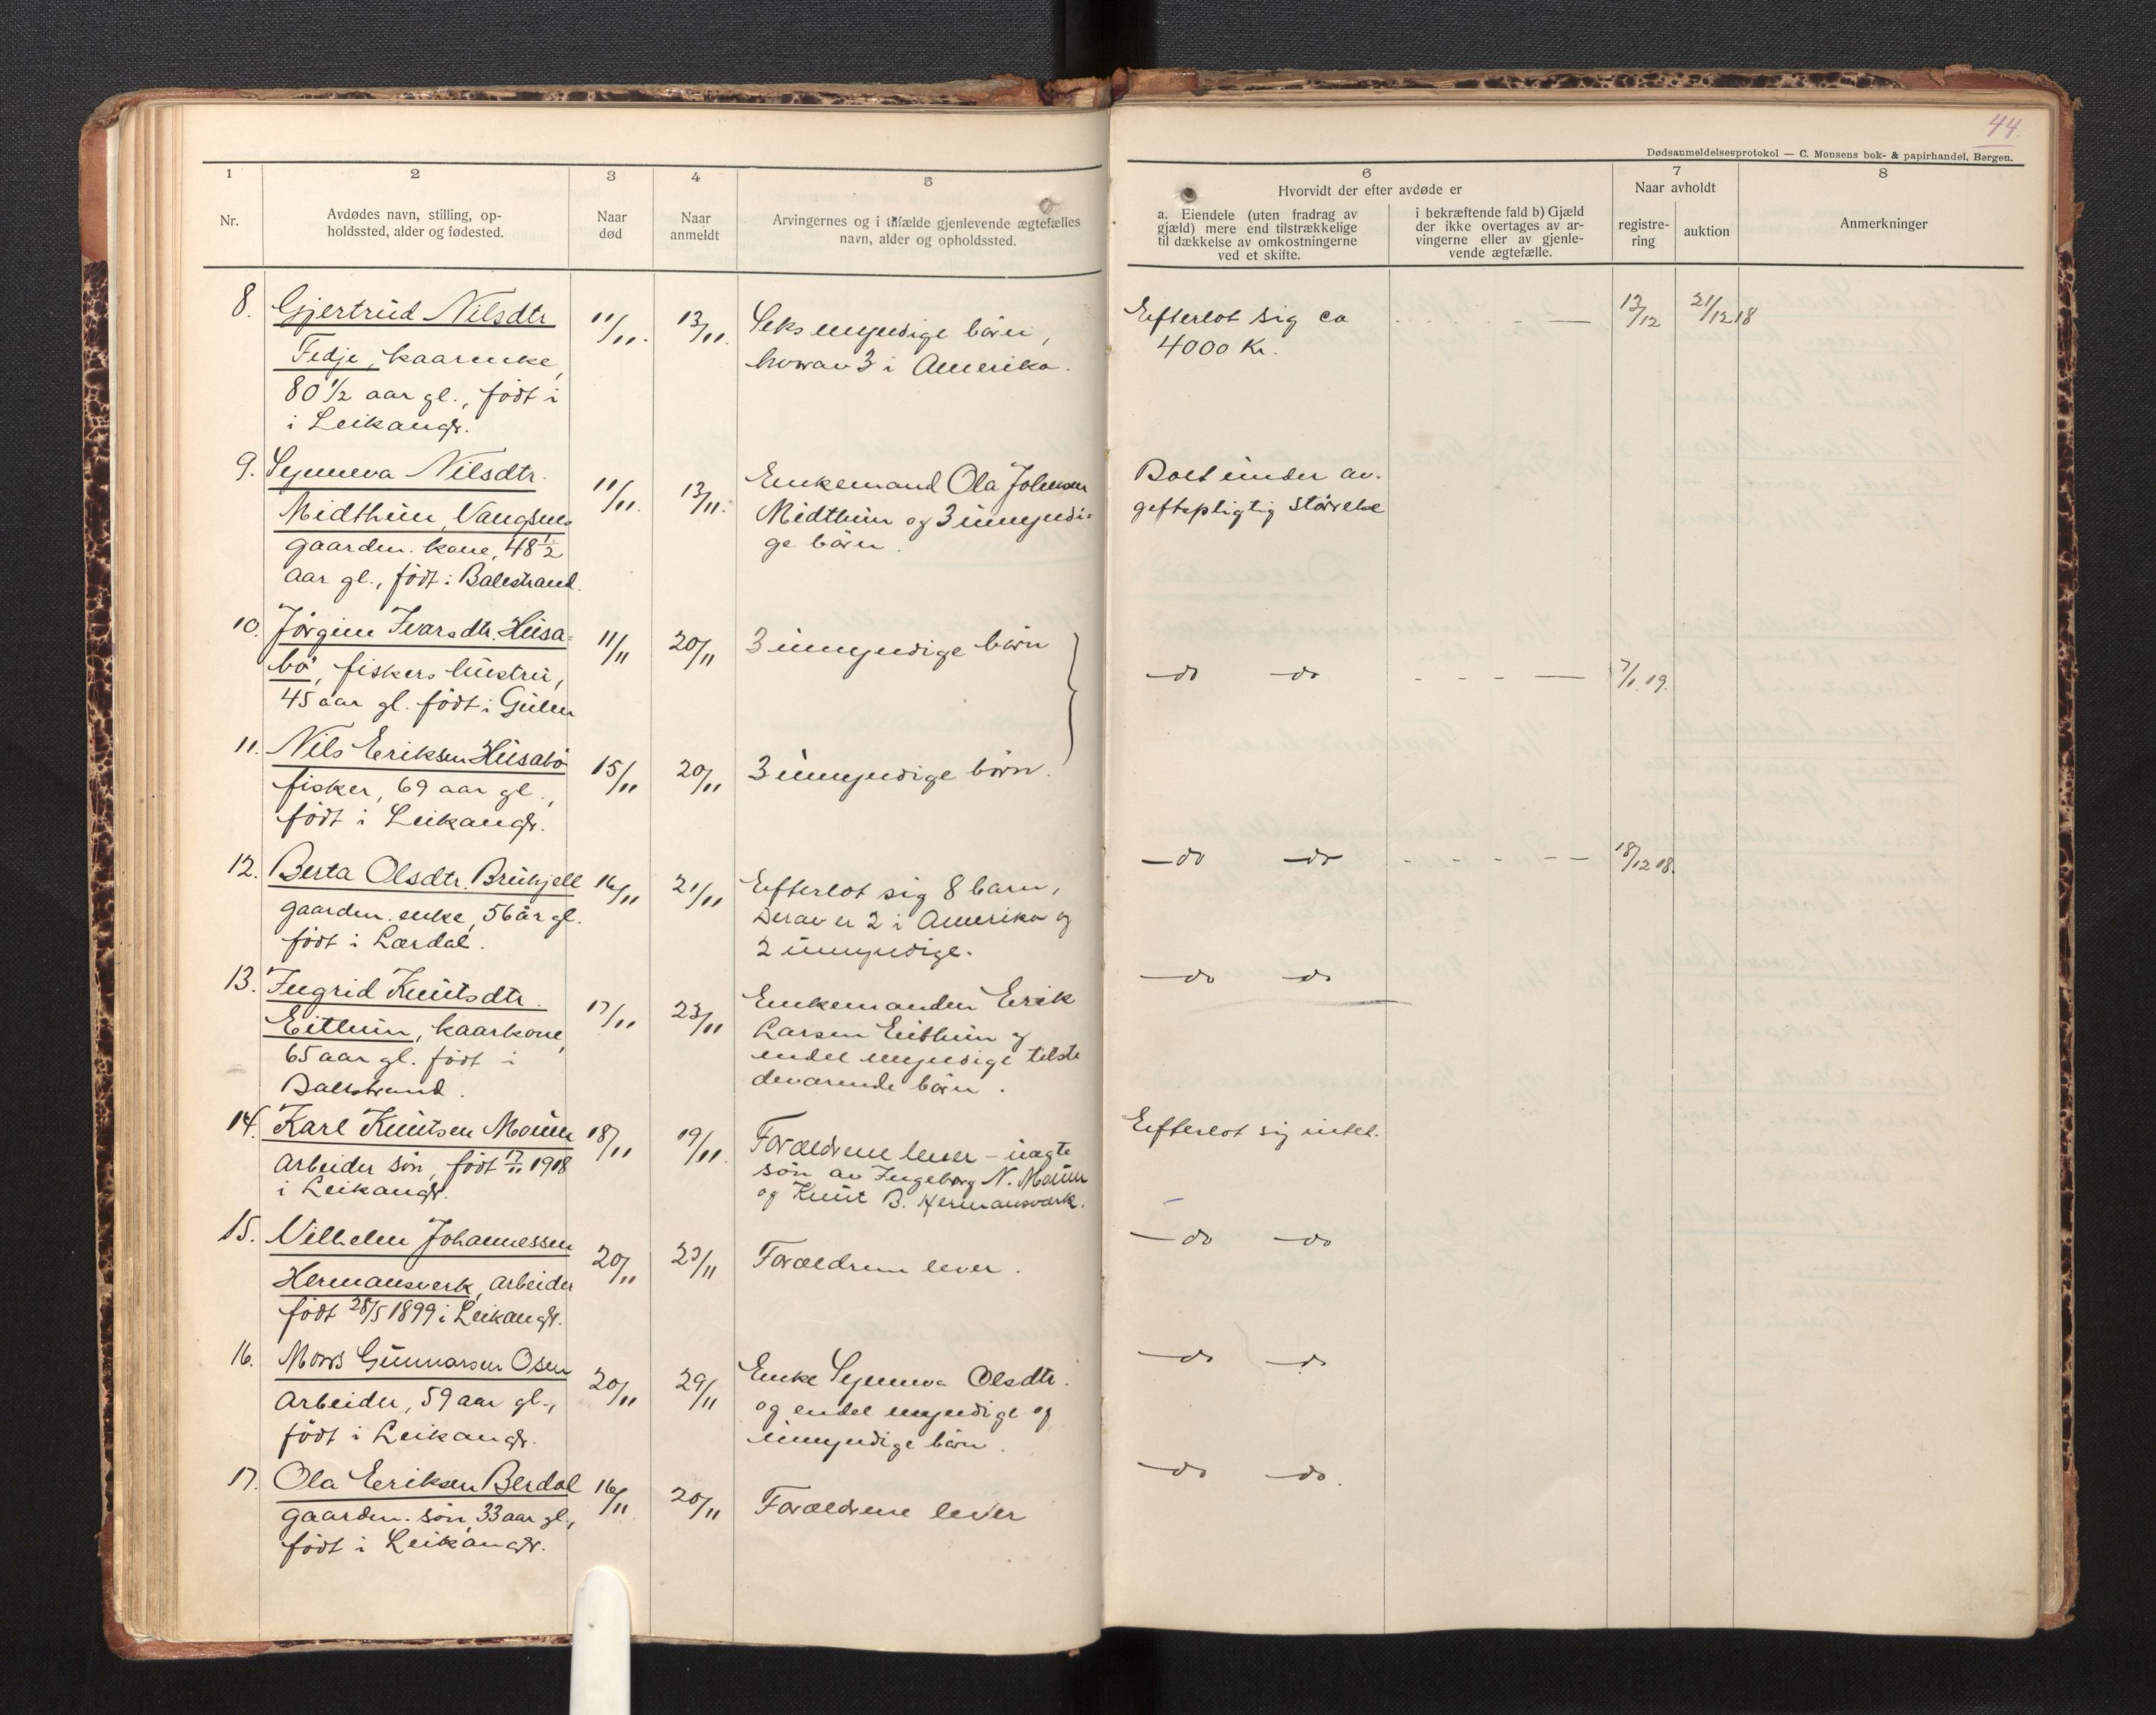 44.
Dødsanmeldelsesprotokol — C. Monsens bok- & papirhandel, Bergen.
1 2 3 4 5
Nr.
Avdødes navn, stilling, op-
holdssted, alder og fødested.
Naar
død
Naar
anmeldt
Arvingernes og i tilfælde gjenlevende ægtefælles
navn, alder og opholdssted.
6
Hvorvidt der efter avdøde er
a. Eiendele (uten fradrag av
gjæld) mere end tilstrækkelige
til dækkelse av omkostningerne
ved et skifte.
i bekræftende fald b) Gjæld
der ikke overtages av ar-
vingerne eller av gjenle-
vende ægtefælle.
7
Naar avholdt
registre-
ring
auktion
8
Anmerkninger
8. Gjertrud Nilsdtr
Fedje, kaarenke,
80 1/2 aar gl., født i
i Leikangr.
11/11.
13/11.
Seks myndige børn,
hvorav 3 i Amerika.
Efterlot sig ca
4000 Kr.
13/12
21/12 18
9. Synneva Nilsdtr.
Midthun, Vangsnes
gaardm. kone, 48 1/2
aar gl., født i Balestrand.
11/11.
13/11.
Enkemand Ola Johnsen
Midthun og 3 umyndi-
ge børn.
Boet under av-
giftspligtig størrelse
10. Jørgine Ivarsdtr. Husa-
bø, fiskers hustru,
45 aar gl. født i Gulen
11/11
20/11
3 umyndige børn
— do — do - - - —
7/1. 19.
11. Nils Eriksen Husabø
fisker, 69 aar gl.,
født i Leikangr.
15/11
20/11
3 umyndige børn.
12. Berta Olsdtr. Bruhjell
gaardm. enke, 56 år gl.
født i Lærdal.
16/11
21/11
Efterlot sig 8 barn,
derav er 2 i Amerika og
2 umyndige.
— do — do - - - - —
18/12 18.
13. Ingrid Knutsdtr.
Eithun, kaarkone,
65 aar gl. født i
Balestrand.
17/11
23/11
Enkemanden Erik
Larsen Eithun og
endel myndige tilste
deværende børn.
— do — do
14. Karl Knutsen Moum
arbeider søn, født 17/11 1918
i Leikangr.
18/11
19/11.
Forældrene lever - uægte
søn av Ingeborg N. Moum
og Knut B. Hermansværk.
Efterlot sig intet.
15. Vilhelm Johannessen
Hermansverk, arbeider
født 28/5 1899 i Leikangr.
20/11
23/11
Forældrene lever.
— do — do
16. Mons Gunnarsen Osen
arbeider, 59 aar gl.,
født i Leikangr.
20/11
29/11
Enke Synneva Olsdtr.
og endel myndige og
umyndige børn.
— do — do
17. Ola Eriksen Berdal
gaardm. søn, 33 aar gl.,
født i Leikangr.
16/11
20/11
Forældrene lever
— do — do.